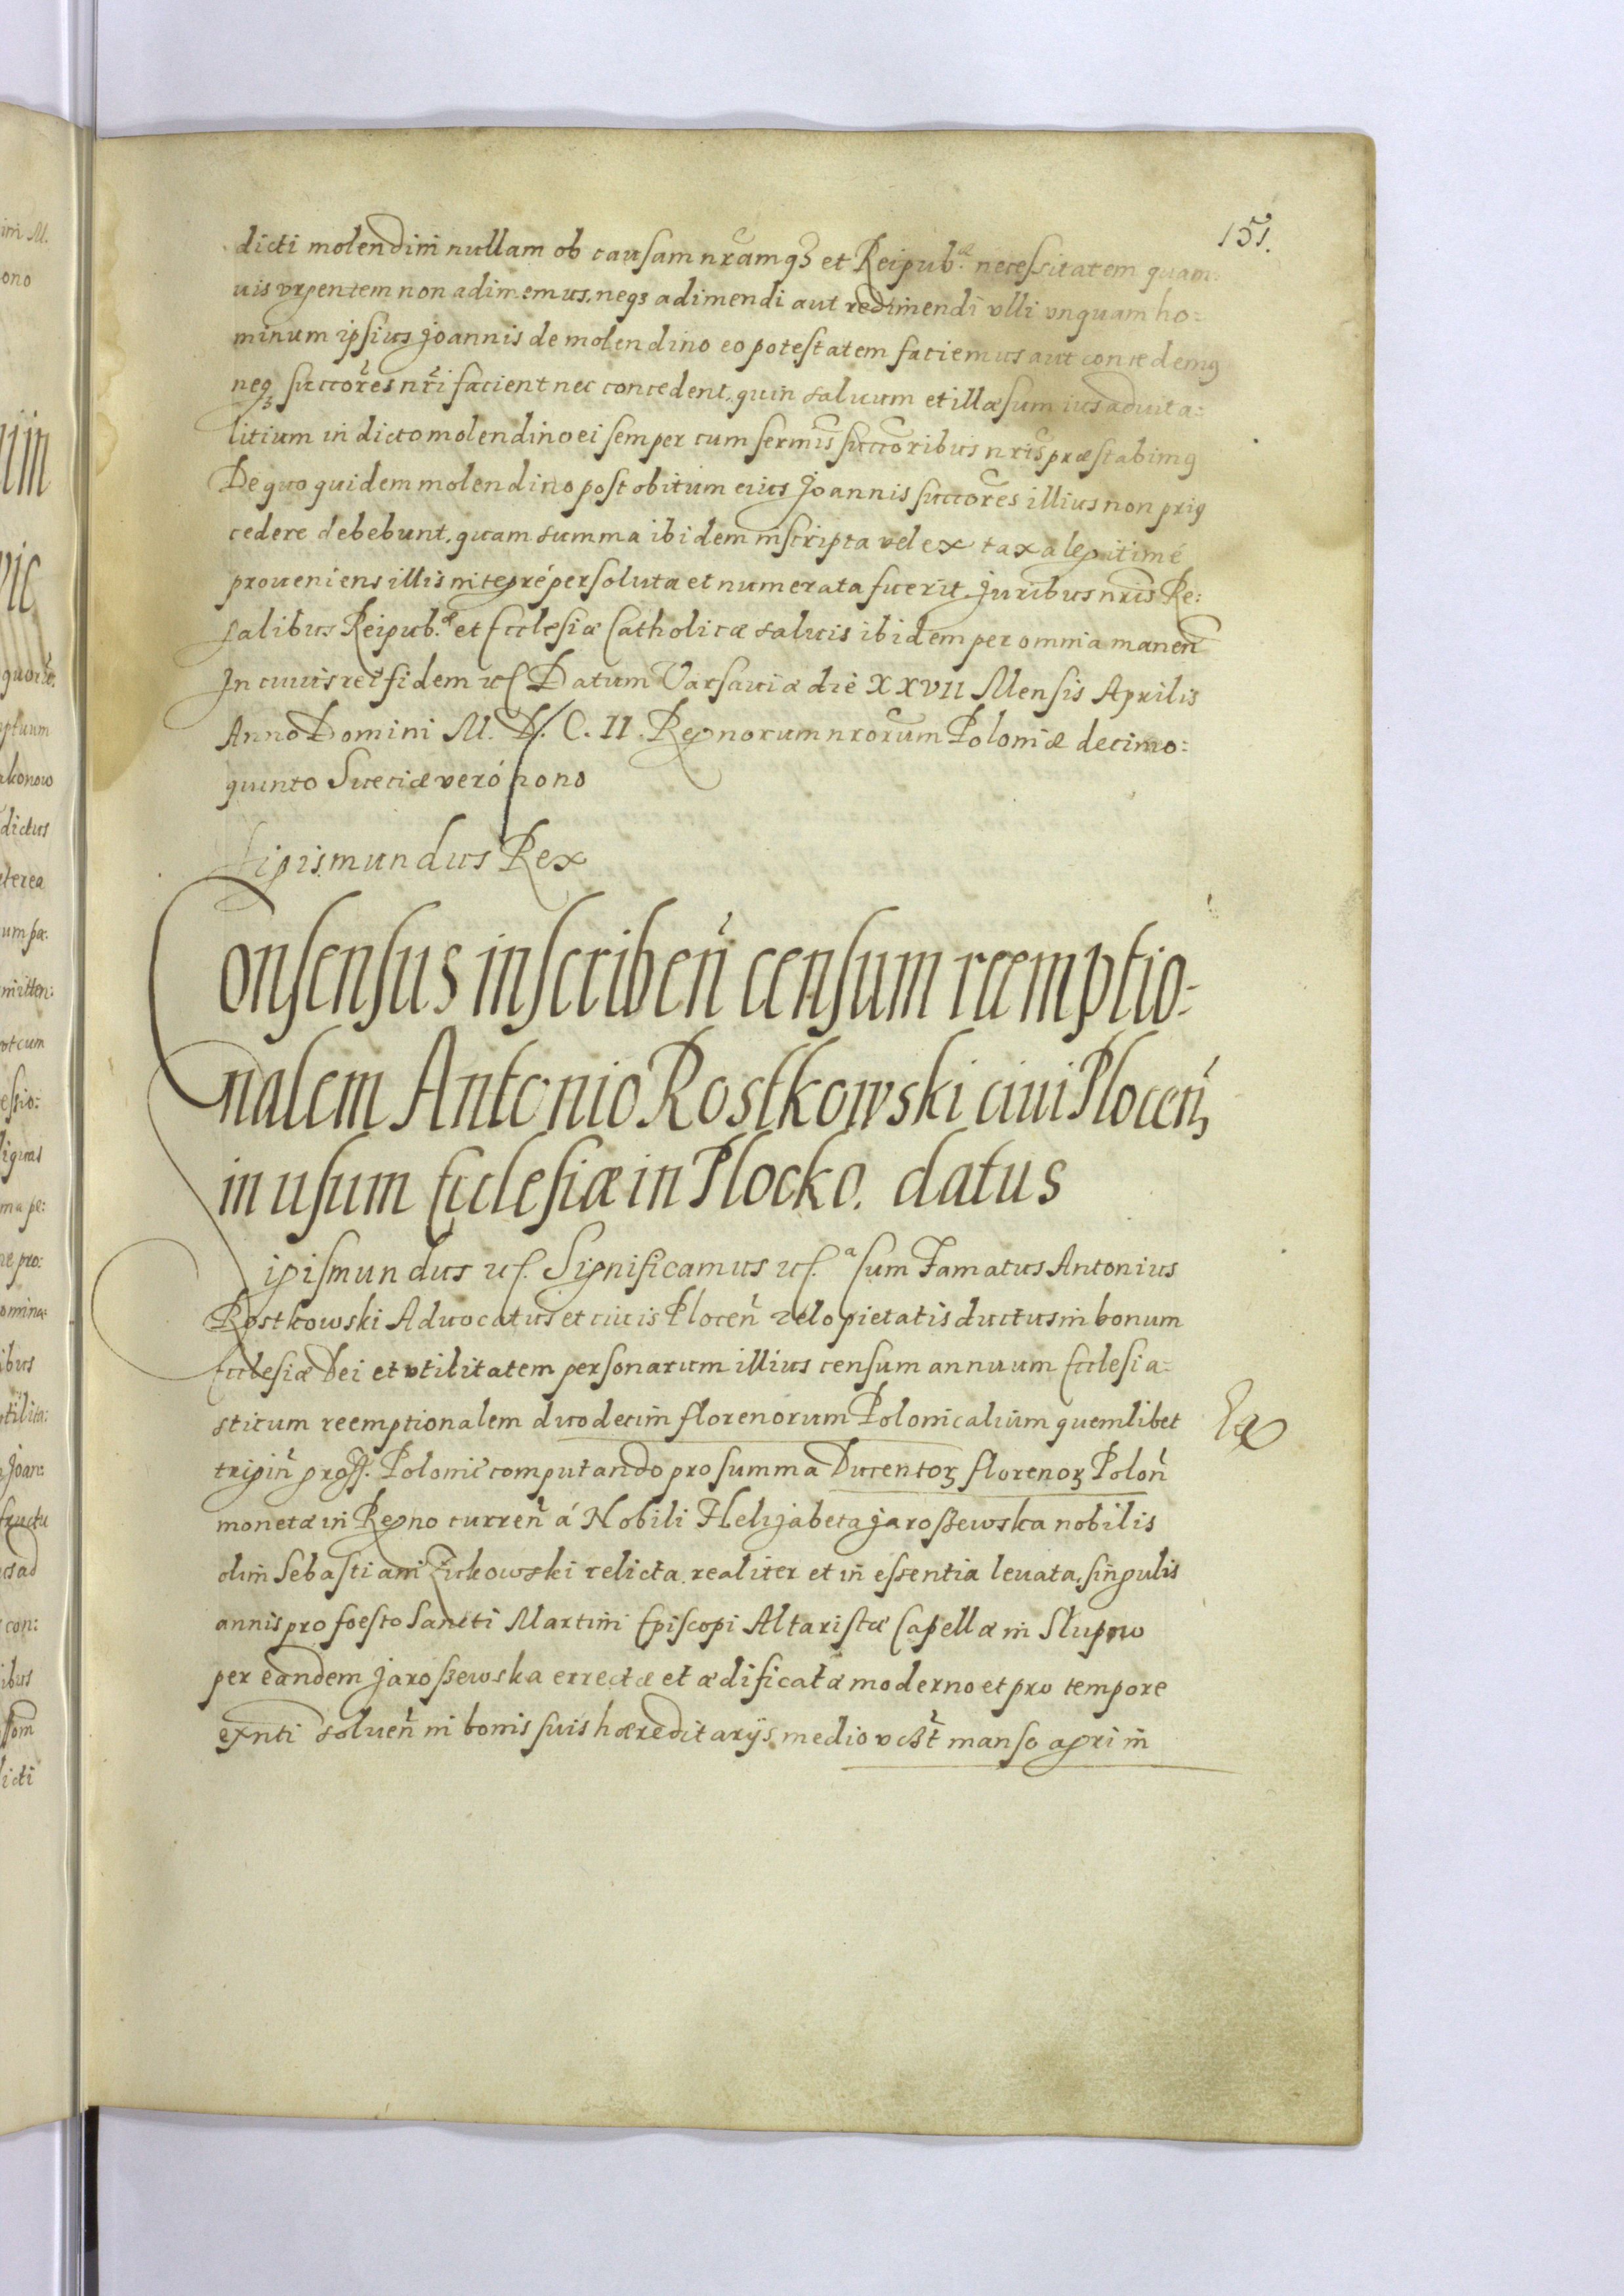 151.
dicti molendini nullam ob causam nr̃amq₃ et Reipub.ᵃᵉ necessitatem quam:
uis vrgentem non adimemus, neq₃ adimendi aut redimendi vlli vnquam ho=
minum ipsius Joannis de molendino eo potestatem faciemus aut concedemꝰ
neq₃ succor̃es nr̃i facient nec concedent, quin saluum et illæsum ius aduita:
litium in dicto molendino ei semper cum serm̃is succor̃ibus nr̃is præstabimꝰ
De quo quidem molendino post obitum eius Joannis succor̃es illius non priꝰ
cedere debebunt, quam summa ibidem inscripta vel ex taxa legitimé
proueniens illis integré persoluta et numerata fuerit. Juribus nr̃is Re:
galibus Reipub.ᵃᵉ et Ecclesiæ Catholicæ saluis ibidem per omnia maneñ
In cuius rei fidem ꝛc̃ Datum Varsauiæ die XXVII Mensis Aprilis
Anno Domini M. D. C. II. Regnorum nr̃orum Poloniæ decimo:
quinto Sueciæ veró nono
Sigismundus Rex
Consensus inscribeñ censum reemptio-
nalem Antonio Rostkowski ciui Ploceñ,
in usum Ecclesiæ in Plocko. datus
Sigismundus ꝛc̃. Significamus ꝛc̃. ᵃ Cum Famatus Antonius
Rostkowski Aduocatus et ciuis Ploceñ zelo pietatis ductus in bonum
Ecclesiæ Dei et vtilitatem personarum illius censum annuum Ecclesia=
sticum reemptionalem duodecim florenorum Polonicalium quemlibet
trigiñ gross. Polonic̃ computando pro summa Ducentoꝝ florenoꝝ Poloñ
monetæ in Regno curreñ á Nobili Helizabeta Jaroszewska nobilis
olim Sebastiani Zickowski relicta, realiter et in essentia leuata, singulis
annis pro foesto Sancti Martini Episcopi Altaristæ Capellæ in Slupno
per eandem Jaroszewska errectæ et ædificatæ moderno et pro tempore
exñti solueñ in bonis suis hæreditarijs, medio vid̃t manso agri in